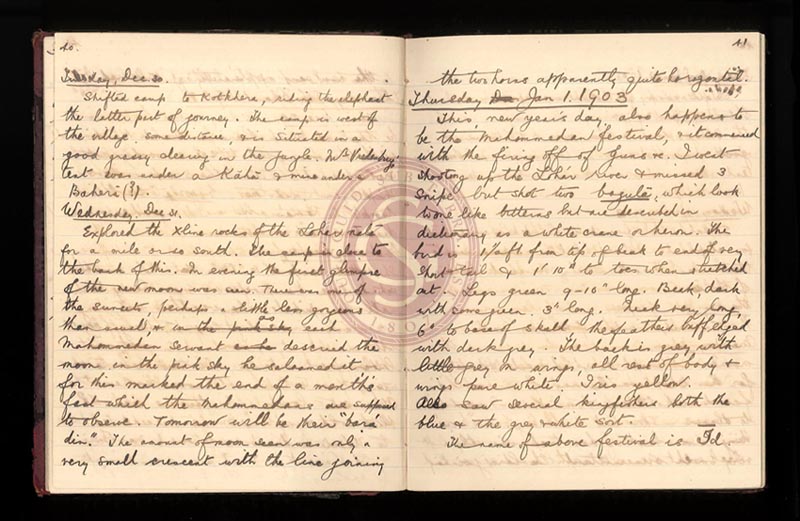 40.
Tuesday, Dec 30.
Shifted camp to Kotkhera, riding the elephant
the latter part of journey. The camp is west of
the village, some distance, & is situated in a
good grassy clearing in the jungle. Mr
tent was under a Kahā & mine under a
Baherā (?).
Wednesday, Dec 31.
Explored the Xline rocks of the Lohar nala
for a mile or so south. The camp is close to
the bank of this. In evening the first glimpse
of the new moon was seen. There was one of
the sunsets, perhaps a little less gorgeous
than usual, & in the pink sky, each
Mahommedan servant as he descried the
moon in the pink sky he salaamed it
for this marked the end of a month's
fast which the Mahommedans are supposed
to observe. Tomorrow will be their "bara
din." The amount of moon seen was only a
very small crescent with the line joining
41
the two horns apparently quite horizontal.
Thursday Jan 1. 1903
This, new year's day, also happens to
be the Mahommedan festival, & it commenced
with the firing off of guns &c. I went
shooting up the Lohar river & missed 3
snipe but shot two bagula, which look
to me like bitterns but are described in
dictionary as a white crane or heron. The
bird is 1½ ft from tip of beak to end of very
short tail & 1' 10" to toes when stretched
out. Legs green 9-10" long. Beak, dark
with some green. 3" long. Neck very long,
6" to base of skull the feathers buff edged
with dark grey. The back is grey, with
little grey on wings, all rest of body &
wings pure white. Iris yellow.
Also saw several kingfishers both the
blue & the grey & white sort.
The name of above festival is Īd.